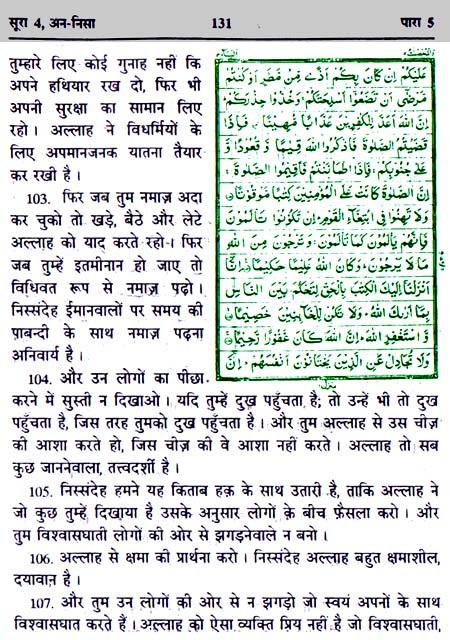 सूरा 4, अन-निसा 131 पारा 5
तुम्हारे लिए कोई गुनाह नहीं कि
अपने हथियार रख दो, फिर भी
अपनी सुरक्षा का सामान लिए
रहो। अल्लाह ने विधर्मियों के
लिए अपमानजनक यातना तैयार
कर रखी है।
103. फिर जब तुम नमाज़ अदा
कर चुको तो खड़े, बैठे और लेटे
अल्लाह को याद करते रहो। फिर
जब तुम्हें इतमीनान हो जाए तो
विधिवत रूप से नमाज़ पढ़ो।
निस्संदेह ईमानवालों पर समय की
पाबन्दी के साथ नमाज़ पढ़ना
अनिवार्य है।
عَلَيْكُمْ إِنْ كَانَ بِكُمْ أَذًى مِّنْ مَّطَرٍ أَوْ كُنْتُمْ
مَّرْضَى أَنْ تَضَعُوا أَسْلِحَتَكُمْ وَخُذُوا حِذْرَكُمْ
إِنَّ اللهَ أَعَدَّ لِلْكَفِرِينَ عَذَابًا مُّهِينًا فَإِذَا
قَضَيْتُمُ الصَّلوةَ فَاذْكُرُوا اللهَ قِيمًا وَّقُعُودًا وَّ
عَلَى جُنُوبِكُمْ فَإِذَا اطْمَأْنَنْتُمْ فَأَقِيمُوا الصَّلوةَ
إِنَّ الصَّلوةَ كَانَتْ عَلَى الْمُؤْمِنِينَ كِتبًا مَّوْقُوتًا
وَلَا تَهِنُوا فِي ابْتِغَاءِ الْقَوْمِ إِنْ تَكُونُوا تَأْلَمُونَ
فَإِنَّهُمْ يَأْلَمُونَ كَمَا تَأْلَمُونَ وَتَرْجُونَ مِنَ اللهِ
مَا لَا يَرْجُونَ وَكَانَ اللهُ عَلِيمًا حَكِيمًا إِنَّا
أَنْزَلْنَا إِلَيْكَ الْكِتبَ بِالْحَقِّ لِتَحْكُمَ بَيْنَ النَّاسِ
بِمَا أَرىكَ اللهُ وَلَا تَكُنْ لِّلْخَائِنِينَ خَصِيمًا
وَّاسْتَغْفِرِ اللهَ إِنَّ اللهَ كَانَ غَفُورًا رَّحِيمًا
وَلَا تُجَادِلْ عَنِ الَّذِينَ يَخْتَانُونَ أَنْفُسَهُمْ إِنَّ
104. और उन लोगों का पीछा
करने में सुस्ती न दिखाओ। यदि तुम्हें दुख पहुँचता है; तो उन्हें भी तो दुख
पहुँचता है, जिस तरह तुमको दुख पहुँचता है। और तुम अल्लाह से उस चीज़
की आशा करते हो, जिस चीज़ की वे आशा नहीं करते। अल्लाह तो सब
कुछ जाननेवाला, तत्त्वदर्शी है।
105. निस्संदेह हमने यह किताब हक़ के साथ उतारी है, ताकि अल्लाह ने
जो कुछ तुम्हें दिखाया है उसके अनुसार लोगों के बीच फ़ैसला करो। और
तुम विश्वासघाती लोगों की ओर से झगड़नेवाले न बनो।
106. अल्लाह से क्षमा की प्रार्थना करो। निस्संदेह अल्लाह बहुत क्षमाशील,
दयावान है।
107. और तुम उन लोगों की ओर से न झगड़ो जो स्वयं अपनों के साथ
विश्वासघात करते हैं। अल्लाह को ऐसा व्यक्ति प्रिय नहीं है जो विश्वासघाती,